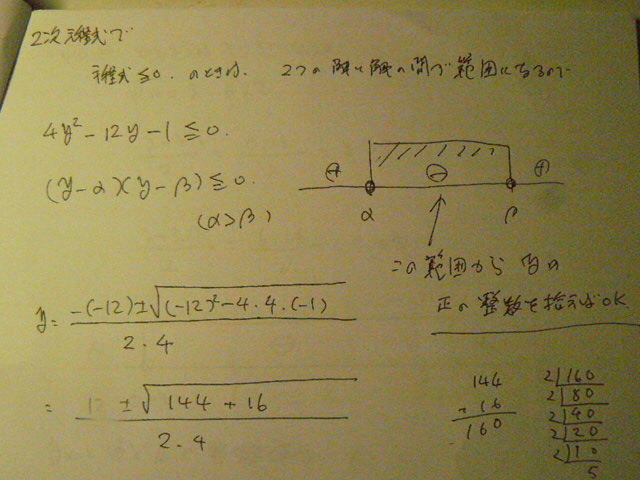 2次方程式で
方程式≦0. のときは、 2つの解と解の間が範囲になるので
4y²-12y-1≦0.
(y-α)(y-β)≦0.
(α>β)
⊕ ⊖ ⊕
α β
この範囲から yの
正の整数を拾えばOK
y= -(-12)±√(-12)²-4・4・(-1) / 2・4
= 12 ±√144+16 / 2・4
144
+16
160
2)160
2)80
2)40
2)20
2)10
5